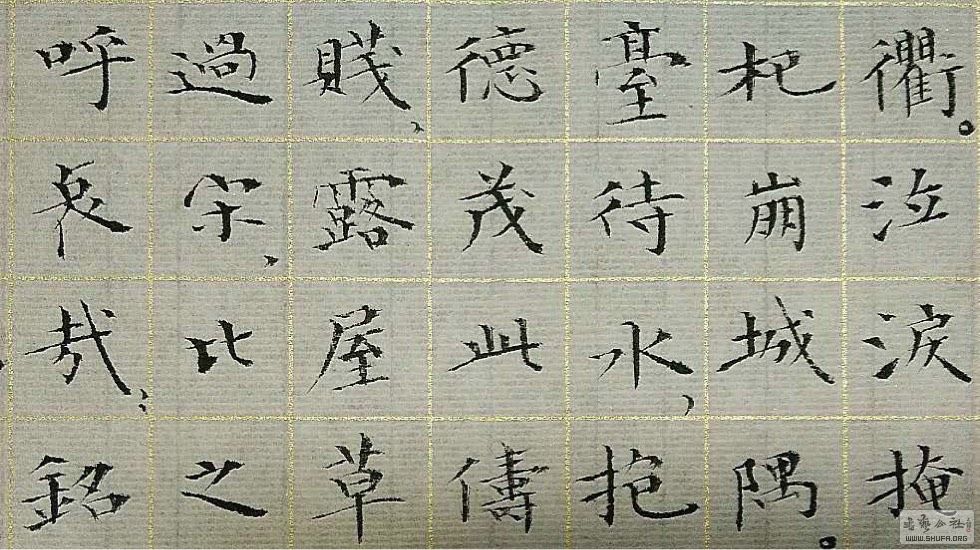 衢。泣淚掩
杞崩城隅。
臺待水，抱
德茂此儔
賤，露屋草
過宋，比之
呼哀哉；銘
WWW.SHUFA.ORG